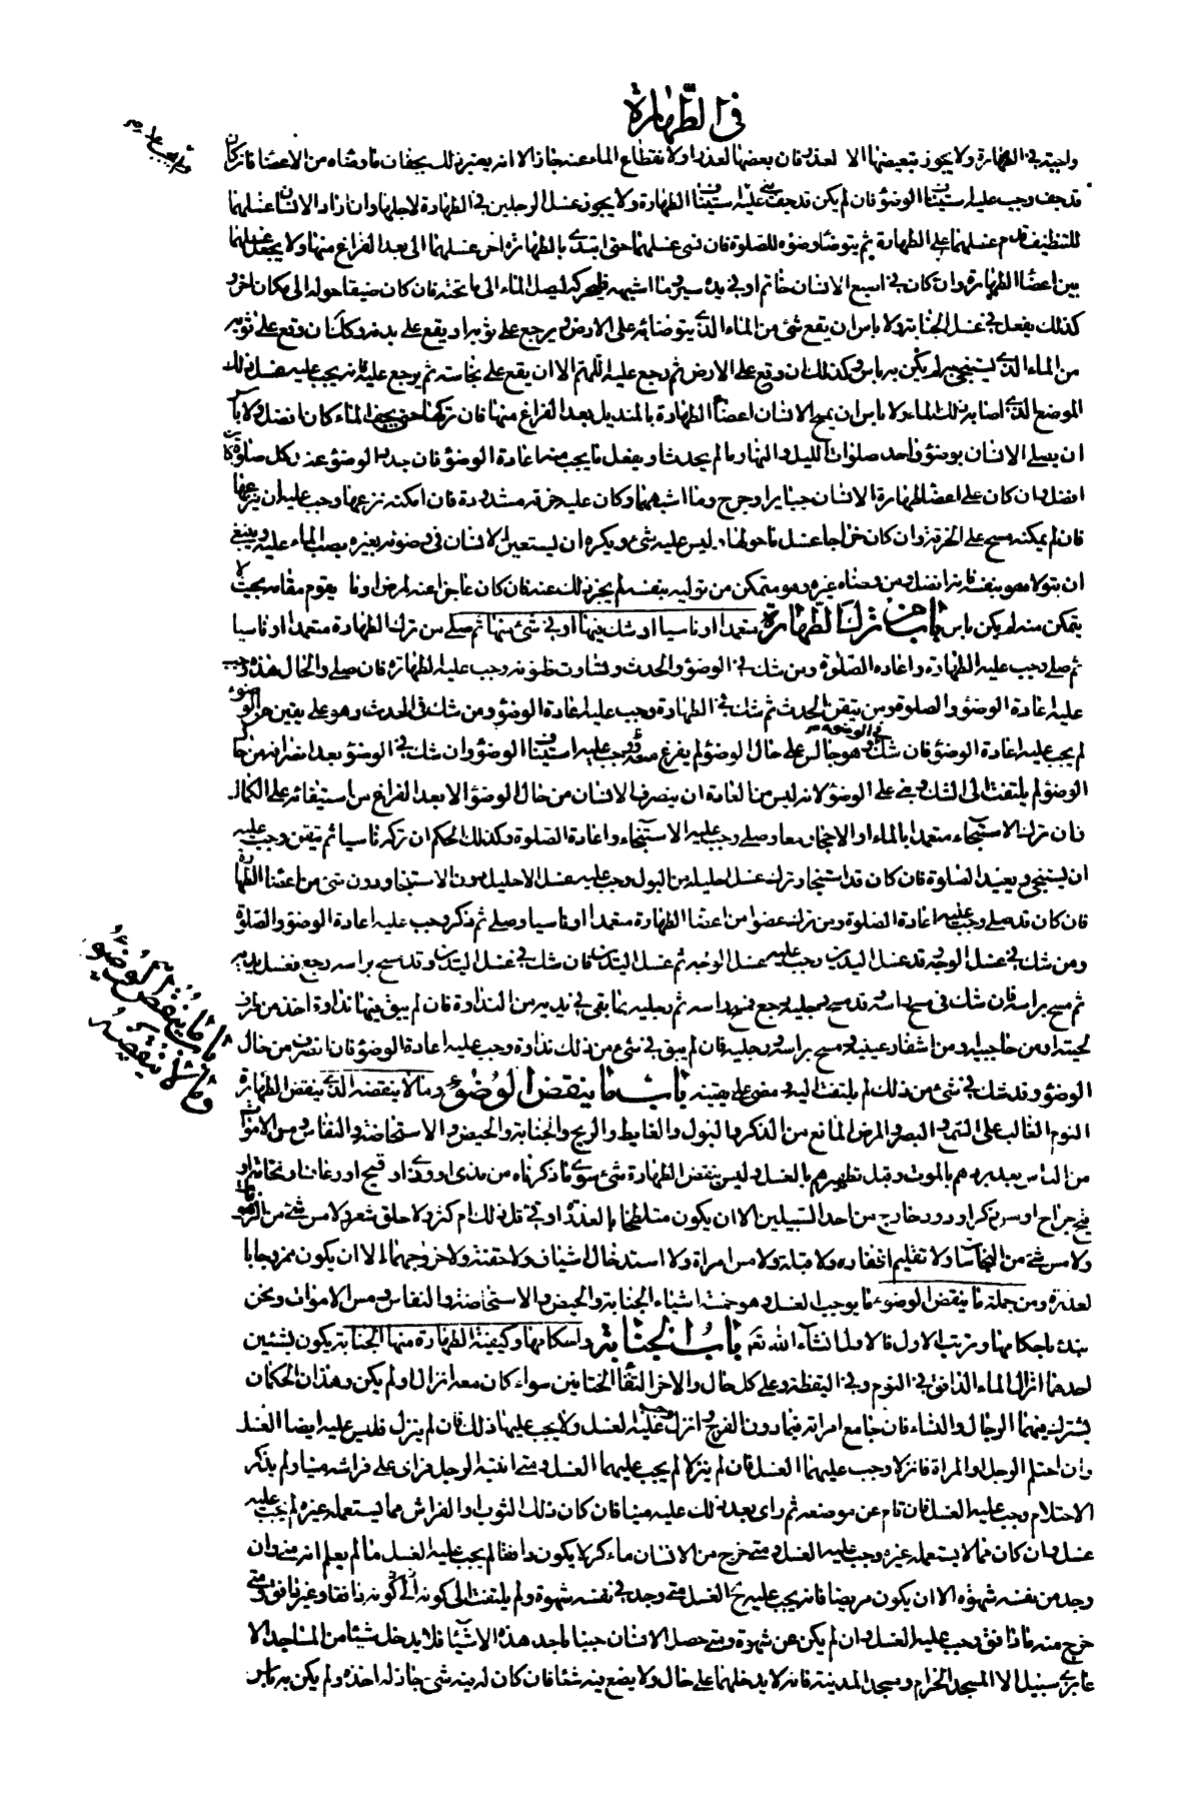 في الطهارة
واجبة في الطهارة ولا يجوز تبعيضها الا لعذر فان بعضها لعذر او لانقطاع الماء عنه جاز الا انه يعتبر ذلك بجفاف ما وضاه من الاعضا فان كان
قد جف وجب عليه استيناف الوضؤ فان لم يكن قد جف بنى عليه استيناف الطهارة ولا يجوز غسل الرجلين في الطهارة لاجلها وان اراد الانسان غسلهما
للتنظيف قدم غسلهما على الطهارة ثم يتوضا وضوه للصلوة فان نسى غسلهما حتى ابتدئ بالطهارة اخر غسلهما الى بعد الفراغ منها ولا يجعل غسلهما
بين اعضاء الطهارة وان كان في اصبع الانسان خاتم او في يده سير وما اشبهه فليحركه ليصل الماء الى ما تحته فان كان ضيقا حوله الى مكان اخر و
كذلك يفعل في غسل الجنابة ولا باس ان يقع شئ من الماء الذي يتوضأ به على الارض ويرجع على ثوبه او يقع على بدنه وكذلك ان وقع على ثوبه
من الماء الذي يستنجي به لم يكن به باس وكذلك ان وقع على الارض ثم رجع عليه اللهم الا ان يقع على نجاسة ثم يرجع عليه فانه يجب عليه غسل ذلك
الموضع الذي اصابه ذلك الماء ولا باس ان يمسح الانسان اعضاء الطهارة بالمنديل بعد الفراغ منها فان تركها حتى يجف الماء كان افضل ولا باس
ان يصلي الانسان بوضؤ واحد صلوات الليل والنهار ما لم يحدث او يفعل ما يجب منه اعادة الوضؤ فان جدد الوضؤ عند كل صلوة كان
افضل وان كان على اعضاء الطهارة الانسان جبايرا وجرح وما اشبههما وكان عليه خرقة مشدودة فان امكنه نزعها وجب عليه ان ينزعها
فان لم يمكنه مسح على الخرقة وان كان خراجا غسل ما حولها وليس عليه شئ ويكره ان يستعين الانسان في وضوئه بغيره يصب الماء عليه وينبغي
ان يتولاه هو بنفسه فانه افضل ومن وضاه غيره وهو متمكن من توليه بنفسه لم يجزه ذلك عنه فان كان عاجزا عنه لمرض او ما يقوم مقامه بحيث لا
يتمكن منه لم يكن به باس باب من ترك الطهارة متعمدا او ناسيا او شك فيها او في شئ منها ثم صلى من ترك الطهارة متعمدا او ناسيا
ثم صلى وجب عليه الطهارة واعادة الصلوة ومن شك في الوضؤ والحدث وتساوت ظنونه وجب عليه الطهارة فان صلى والحال هذه وجب
عليه اعادة الوضؤ والصلوة ومن تيقن الحدث ثم شك في الطهارة وجب عليه اعادة الوضؤ ومن شك في الحدث وهو على يقين من الوضوء
لم يجب عليه اعادة الوضؤ فان شك في الوضوء وهو جالس على حال الوضؤ لم يفرغ منه وجب عليه استيناف الوضؤ وان شك في الوضؤ بعد انصرافه من حال
الوضؤ لم يلتفت الى الشك ومضى على الوضؤ لانه ليس من العادة ان ينصرف الانسان من حال الوضؤ الا بعد الفراغ من استيفائه على الكمال
فان ترك الاستنجاء متعمدا بالماء او الاحجار معا وصلى وجب عليه الاستنجاء واعادة الصلوة وكذلك الحكم ان تركه ناسيا ثم تيقن وجب عليه
ان يستنجي ويعيد الصلوة فان كان قد استنجا وترك غسل احليله من البول وجب عليه غسل الاحليل دون الاستنجاء ودون شئ من اعضا الطهارة
فان كان قد صلى وجب عليه اعادة الصلوة ومن ترك عضوا من اعضا الطهارة متعمدا او ناسيا وصلى ثم ذكر وجب عليه اعادة الوضؤ والصلوة
ومن شك في غسل الوجه وقد غسل اليدين وجب عليه غسل الوجه ثم غسل اليدين فان شك في غسل اليدين وقد مسح براسه رجع فغسل يديه
ثم مسح براسه فان شك في مسح راسه وقد مسح رجليه رجع فمسح راسه ثم رجليه بما بقي في يديه من النداوة فان لم يبق فيهما نداوة اخذ من اطراف
لحيته او من حاجبيه ومن اشفار عينيه ومسح براسه ورجليه فان لم يبق في شئ من ذلك نداوة وجب عليه اعادة الوضؤ فان انصرف من حال
الوضؤ وقد شك في شئ من ذلك لم يلتفت اليه ومضى على يقينه باب ما ينقض الوضوء وما لا ينقضه الذي ينقض الطهارة
النوم الغالب على السمع والبصر والمرض المانع من الذكر والبول والغايط والريح والجنابة والحيض والاستحاضة والنفاس ومس الاموات
من الناس بعد بردهم بالموت وقبل تطهيرهم بالغسل وليس ينقض الطهارة شئ سوى ما ذكرناه من مذى او وذى او قيح او رعاف او نخامة او
فتح جراح او مس ذكر او دود خارج من احد السبيلين الا ان يكون متلطخا بالعذرة او قئ قل ذلك ام كثر ولا حلق شعر ولا مس شئ من الزهومات
ولا مس شئ من النجاسات ولا تقليم اظفار ولا قبلة ولا مس امراة ولا استدخال اشياف ولا حقنة ولا خروجهما الا ان يكون ممزوجا با
لعذرة ومن جملة ما ينقض الوضوء ما يوجب الغسل وهو خمسة اشياء الجنابة والحيض والاستحاضة والنفاس ومس الاموات ونحن
نبدء باحكامها ونرتب الاول فالاول انشاء الله تعم باب الجنابة واحكامها وكيفية الطهارة منها الجنابة يكون بشيئين
احدهما انزال الماء الدافق في النوم وفي اليقظة وعلى كل حال والاخر التقاء الختانين سواء كان معه انزال او لم يكن وهذان الحكمان
يشترك فيهما الرجال والنساء فان جامع امراته فيما دون الفرج وانزل وجب عليه الغسل ولا يجب عليها ذلك فان لم ينزل فليس عليه ايضا الغسل
وان احتلم الرجل والمراة فانزلا وجب عليهما الغسل فان لم ينزلا لم يجب عليهما الغسل ومتى انتبه الرجل فراى على فراشه منيا ولم يذكر
الاحتلام وجب عليه الغسل فان قام عن موضعه ثم راى بعد ذلك عليه منيا فان كان ذلك الثوب او الفراش مما يستعمله غيره لم يجب عليه
غسل وان كان مما لا يستعمله غيره وجب عليه الغسل ومتى خرج من الانسان ماء كثر لا يكون دافقا لم يجب عليه الغسل ما لم يعلم انه مني وان
وجد من نفسه شهوة الا ان يكون مريضا فانه يجب عليه ح الغسل متى وجد في نفسه شهوة ولم يلتفت الى كونه دافقا وغير دافق ومتى
خرج منه ماء دافق وجب عليه الغسل وان لم يكن عن شهوة ومتى حصل الانسان جنبا باحد هذه الاشياء فلا يدخل شيئا من المساجد الا
عابري سبيل الا المسجد الحرام ومسجد المدينة فانه لا يدخلهما على حال ولا يضع فيه شيئا فان كان له فيه شئ جاز له اخذه ولم يكن به باس
باب ما ينقض الوضوء
وما لا ينقضه